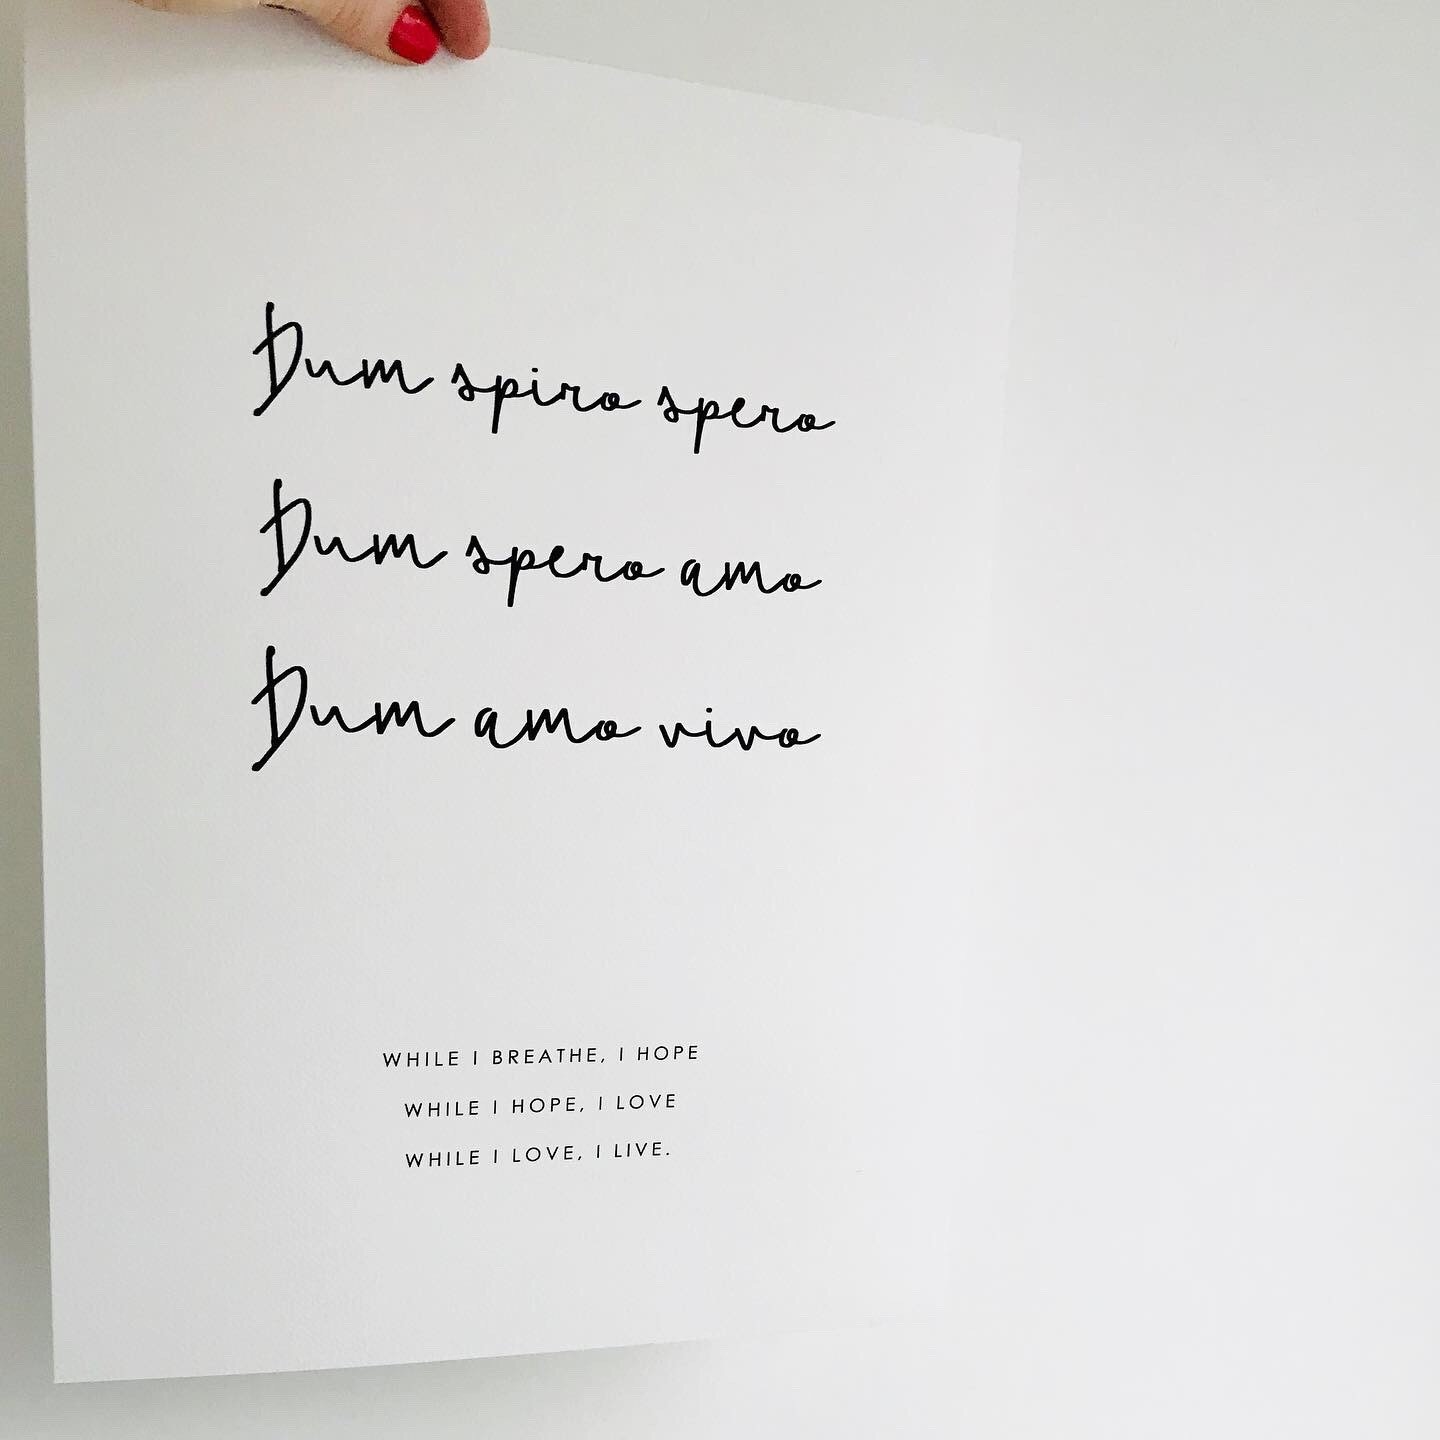 Dum spiro spero
Dum spero amo
Dum amo vivo
WHILE I BREATHE, I HOPE
WHILE I HOPE, I LOVE
WHILE I LOVE, I LIVE.